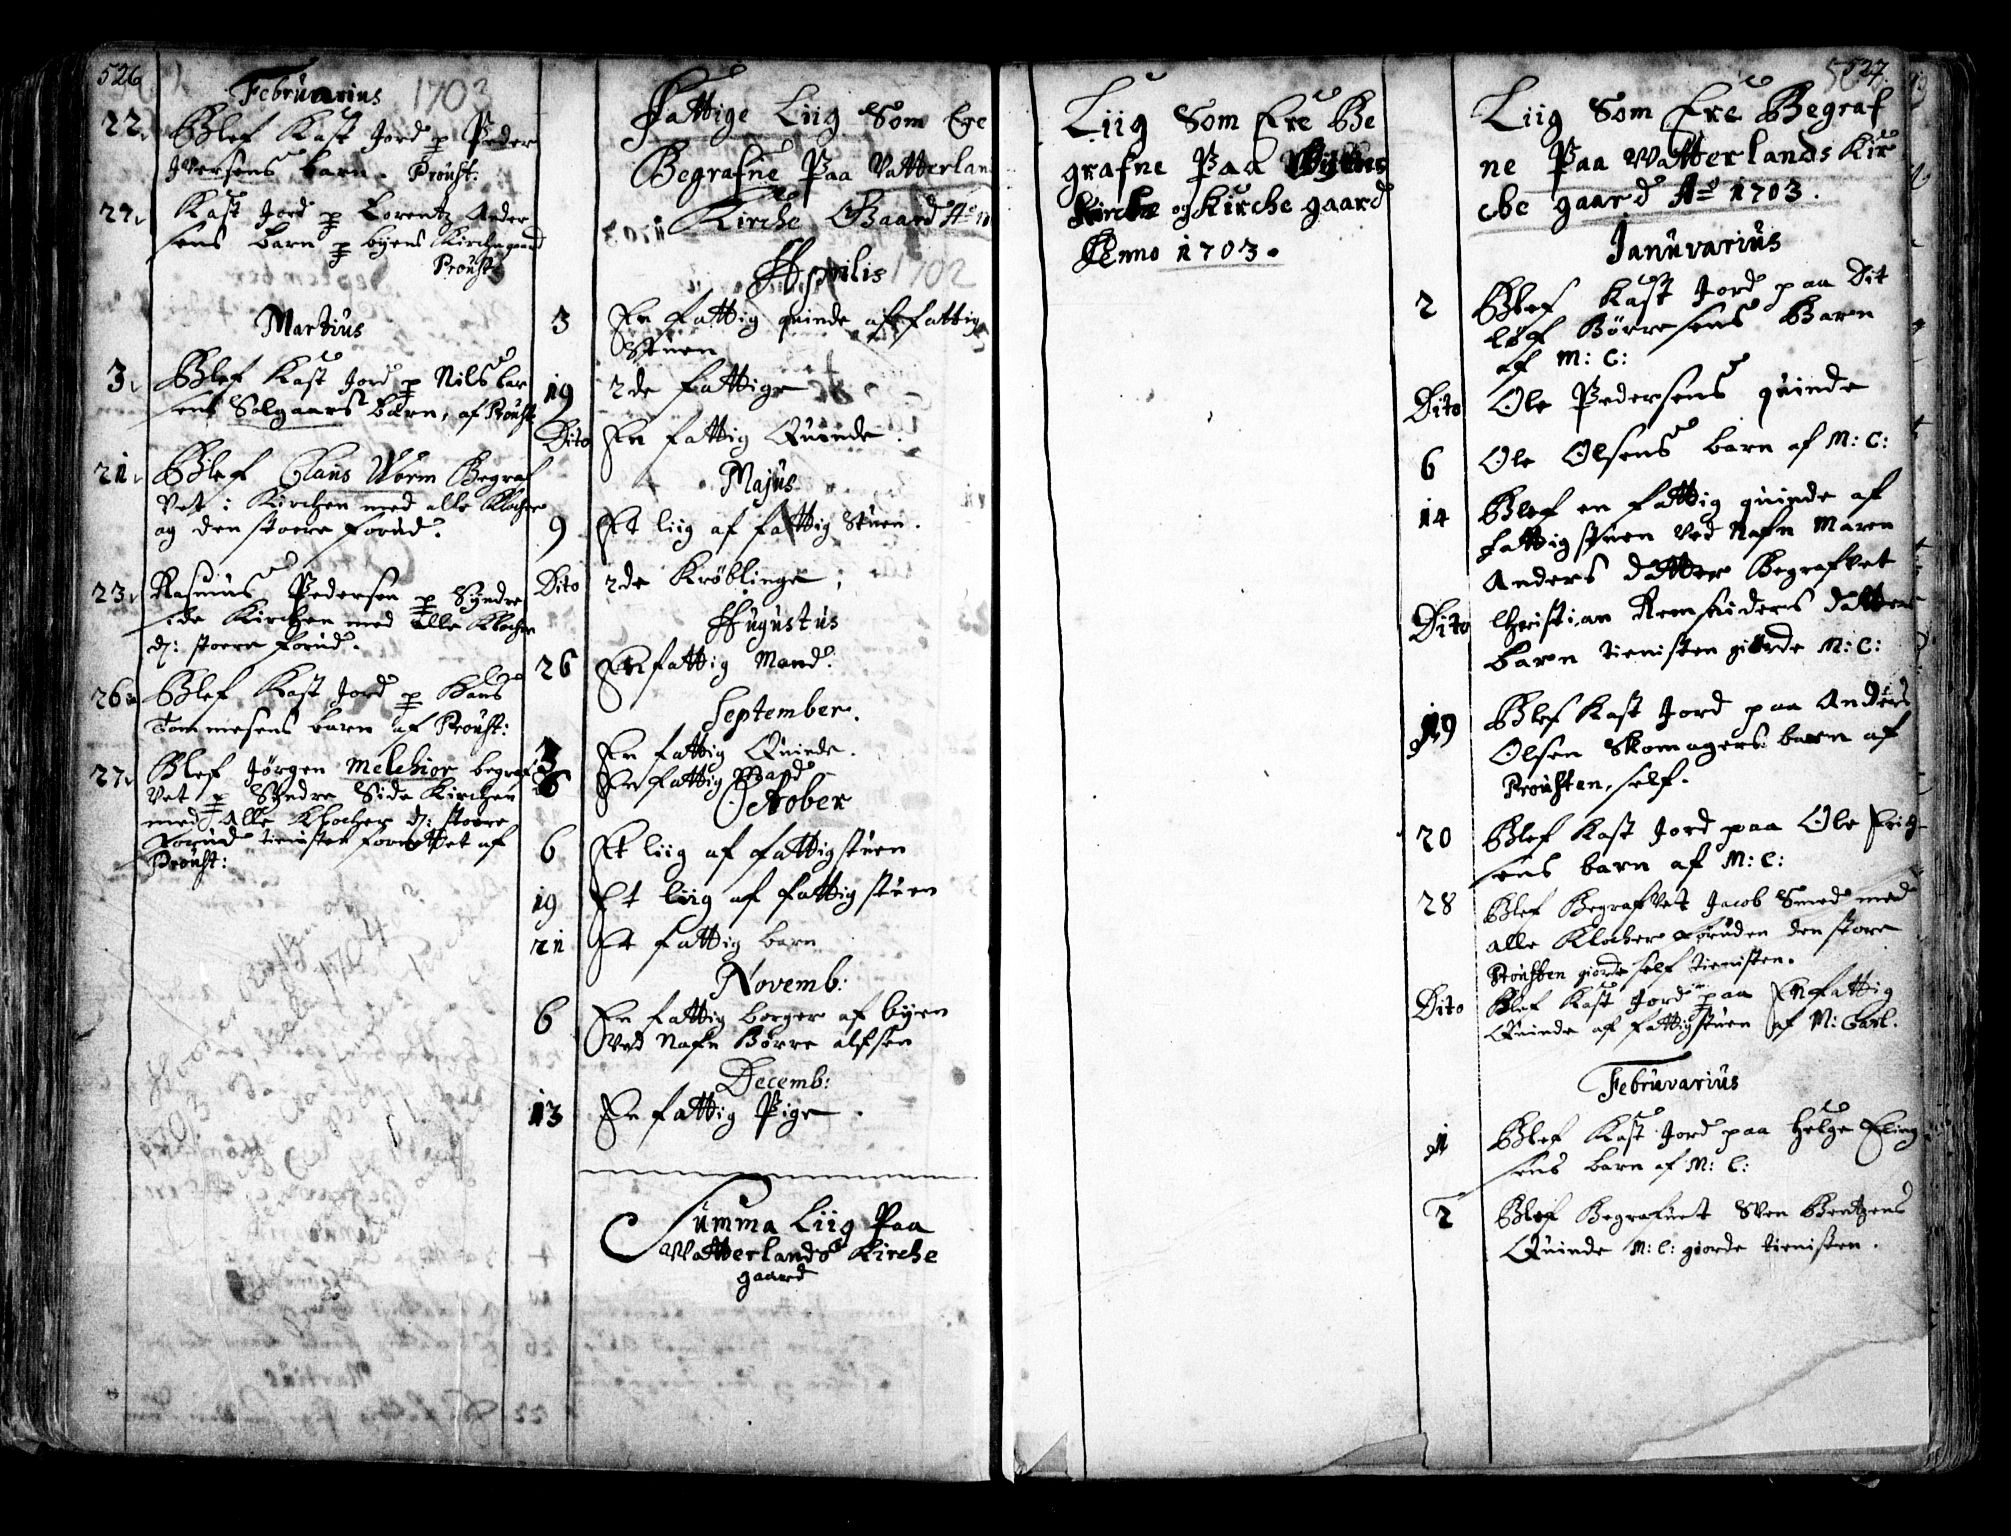 526
Februarius 1703
22. Blef Kast Jord p Peder
Iversens barn. Proust:
27. Kast Jord p Lorentz Ander
sens barn p byens Kirchegaard
Proust:
Martius
3. Blef Kast Jord p Nils Lar
sens Solgaars barn, af Proust
21. Blef Claus Worm Begraf
vet i Kirchen med alle Klocher
og den stoere forud.
23. Rasmus Pedersen p Syndre
side Kirchen med alle Klocher
d: stoere forud.
26. Blef Kast Jord p Hans
Tommesens barn af Proust:
27. Blef Jørgen Melchior begraf
vet p Syndre Side Kirchen
med Alle Klocher d: stoere
Forud tienisten forrettet af
Proust:
Fattige Liig Som Ere
Begrafne Paa Vatterlan
Kirche Gaard Ao
Aprilis 1702
3 En fattig quinde af fattig
Stuen
19 2de fattige
Dito En fattig Quinde.
Majus
9 Et liig af fattig Stuen.
Dito 2de Krøblinge;
Augustus
26 En fattig Mand.
September.
3 En fattig Quinde.
En fattig Mand
October
6 Et liig af fattigstuen
19 Et liig af fattigstuen
21 Et fattig barn
Novemb:
6 En fattig borger af byen
Ved Nafn Børre alfsen
Decemb:
13 En fattig Pige.
Summa Liig Paa
Watterlands Kirche
gaard
Liig Som Ere Be
grafne Paa Byens
Kirche og Kirche gaard
Anno 1703.
527.
Liig Som Ere Begraf
ne Paa Watterlands Kir
che gaard Ao 1703.
Januvarius
2 Blef Kast Jord paa Dit
løf Børresens Barn
af M: C:
Dito Ole Pedersens quinde
6 Ole Olsens barn af M: C:
14 Blef en fattig quinde af
fattigstuen Ved Nafn Maren
Anders datter Begrafvet
Dito Christian Remsniders datters
barn tienisten giorde M: C:
19 Blef Kast Jord paa Anders
Olsen Skomagers barn af
Prousten, self.
20 Blef Kast Jord paa Ole Erich
sens barn af M: C:
28 Blef Begrafvet Jacob Smed med
alle Klocher foruden den store
Prousten giorde self tienisten.
Dito Blef Kast Jord paa En fattig
Quinde af fattigstuen af M: Carl.
Februvarius
1 Blef Kast Jord paa Helge Eling
sens barn af M: C:
2 Blef Begrafuet Sven Bentzens
Quinde M: C: giorde tienisten.